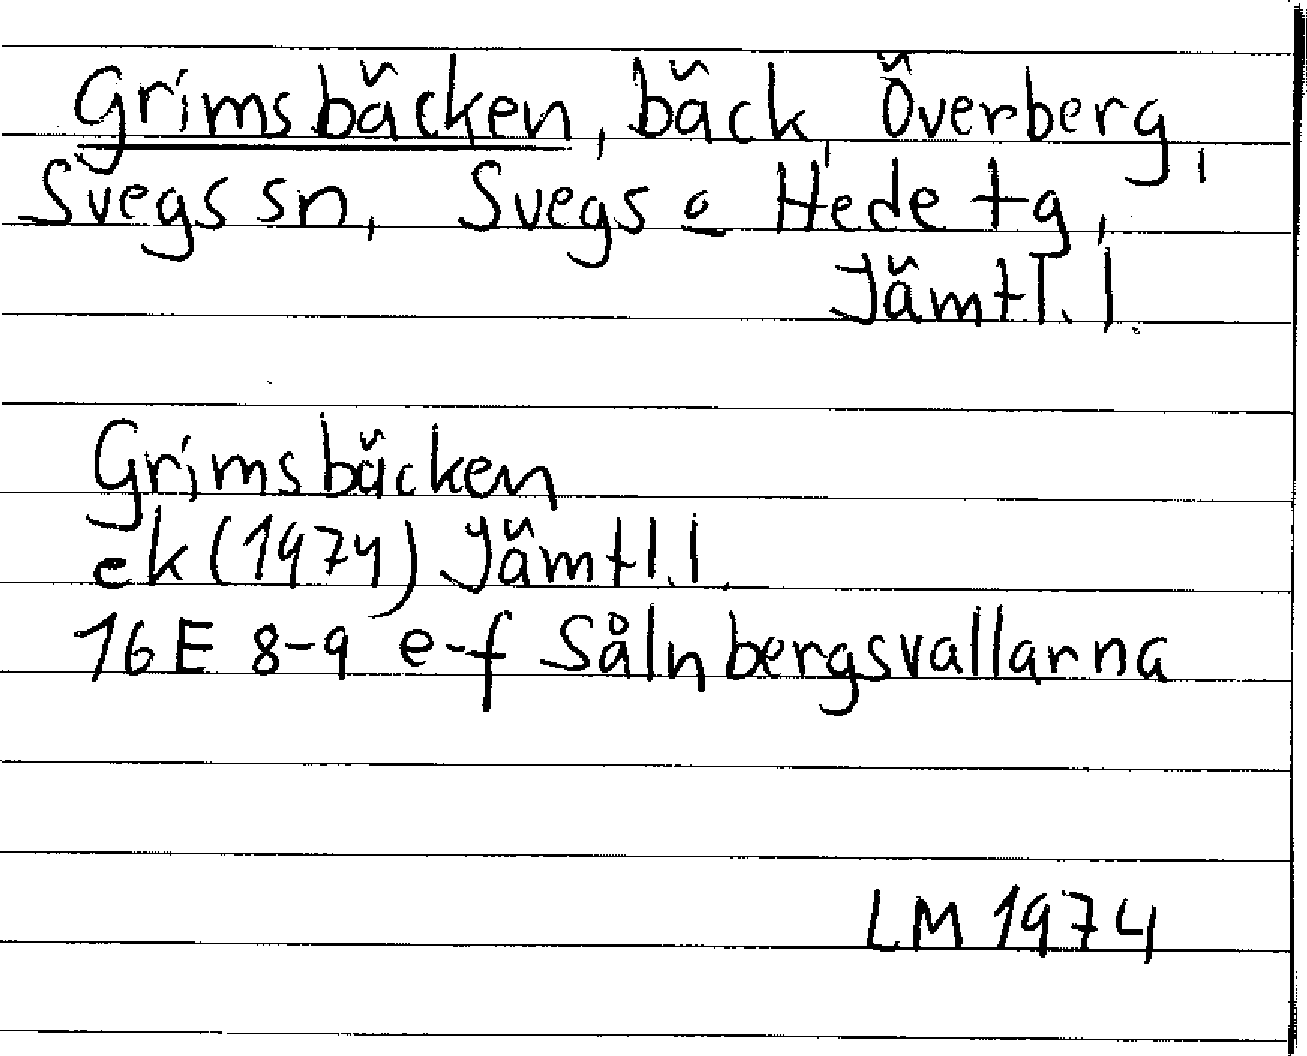 Grimsbäcken, bäck, Överberg,
Svegs sn, Svegs o Hede tg,
Jämtl. l.
Grimsbäcken
ek (1974) Jämtl. l.
16E 8-9 e-f Sålnbergsvallarna
LM 1974